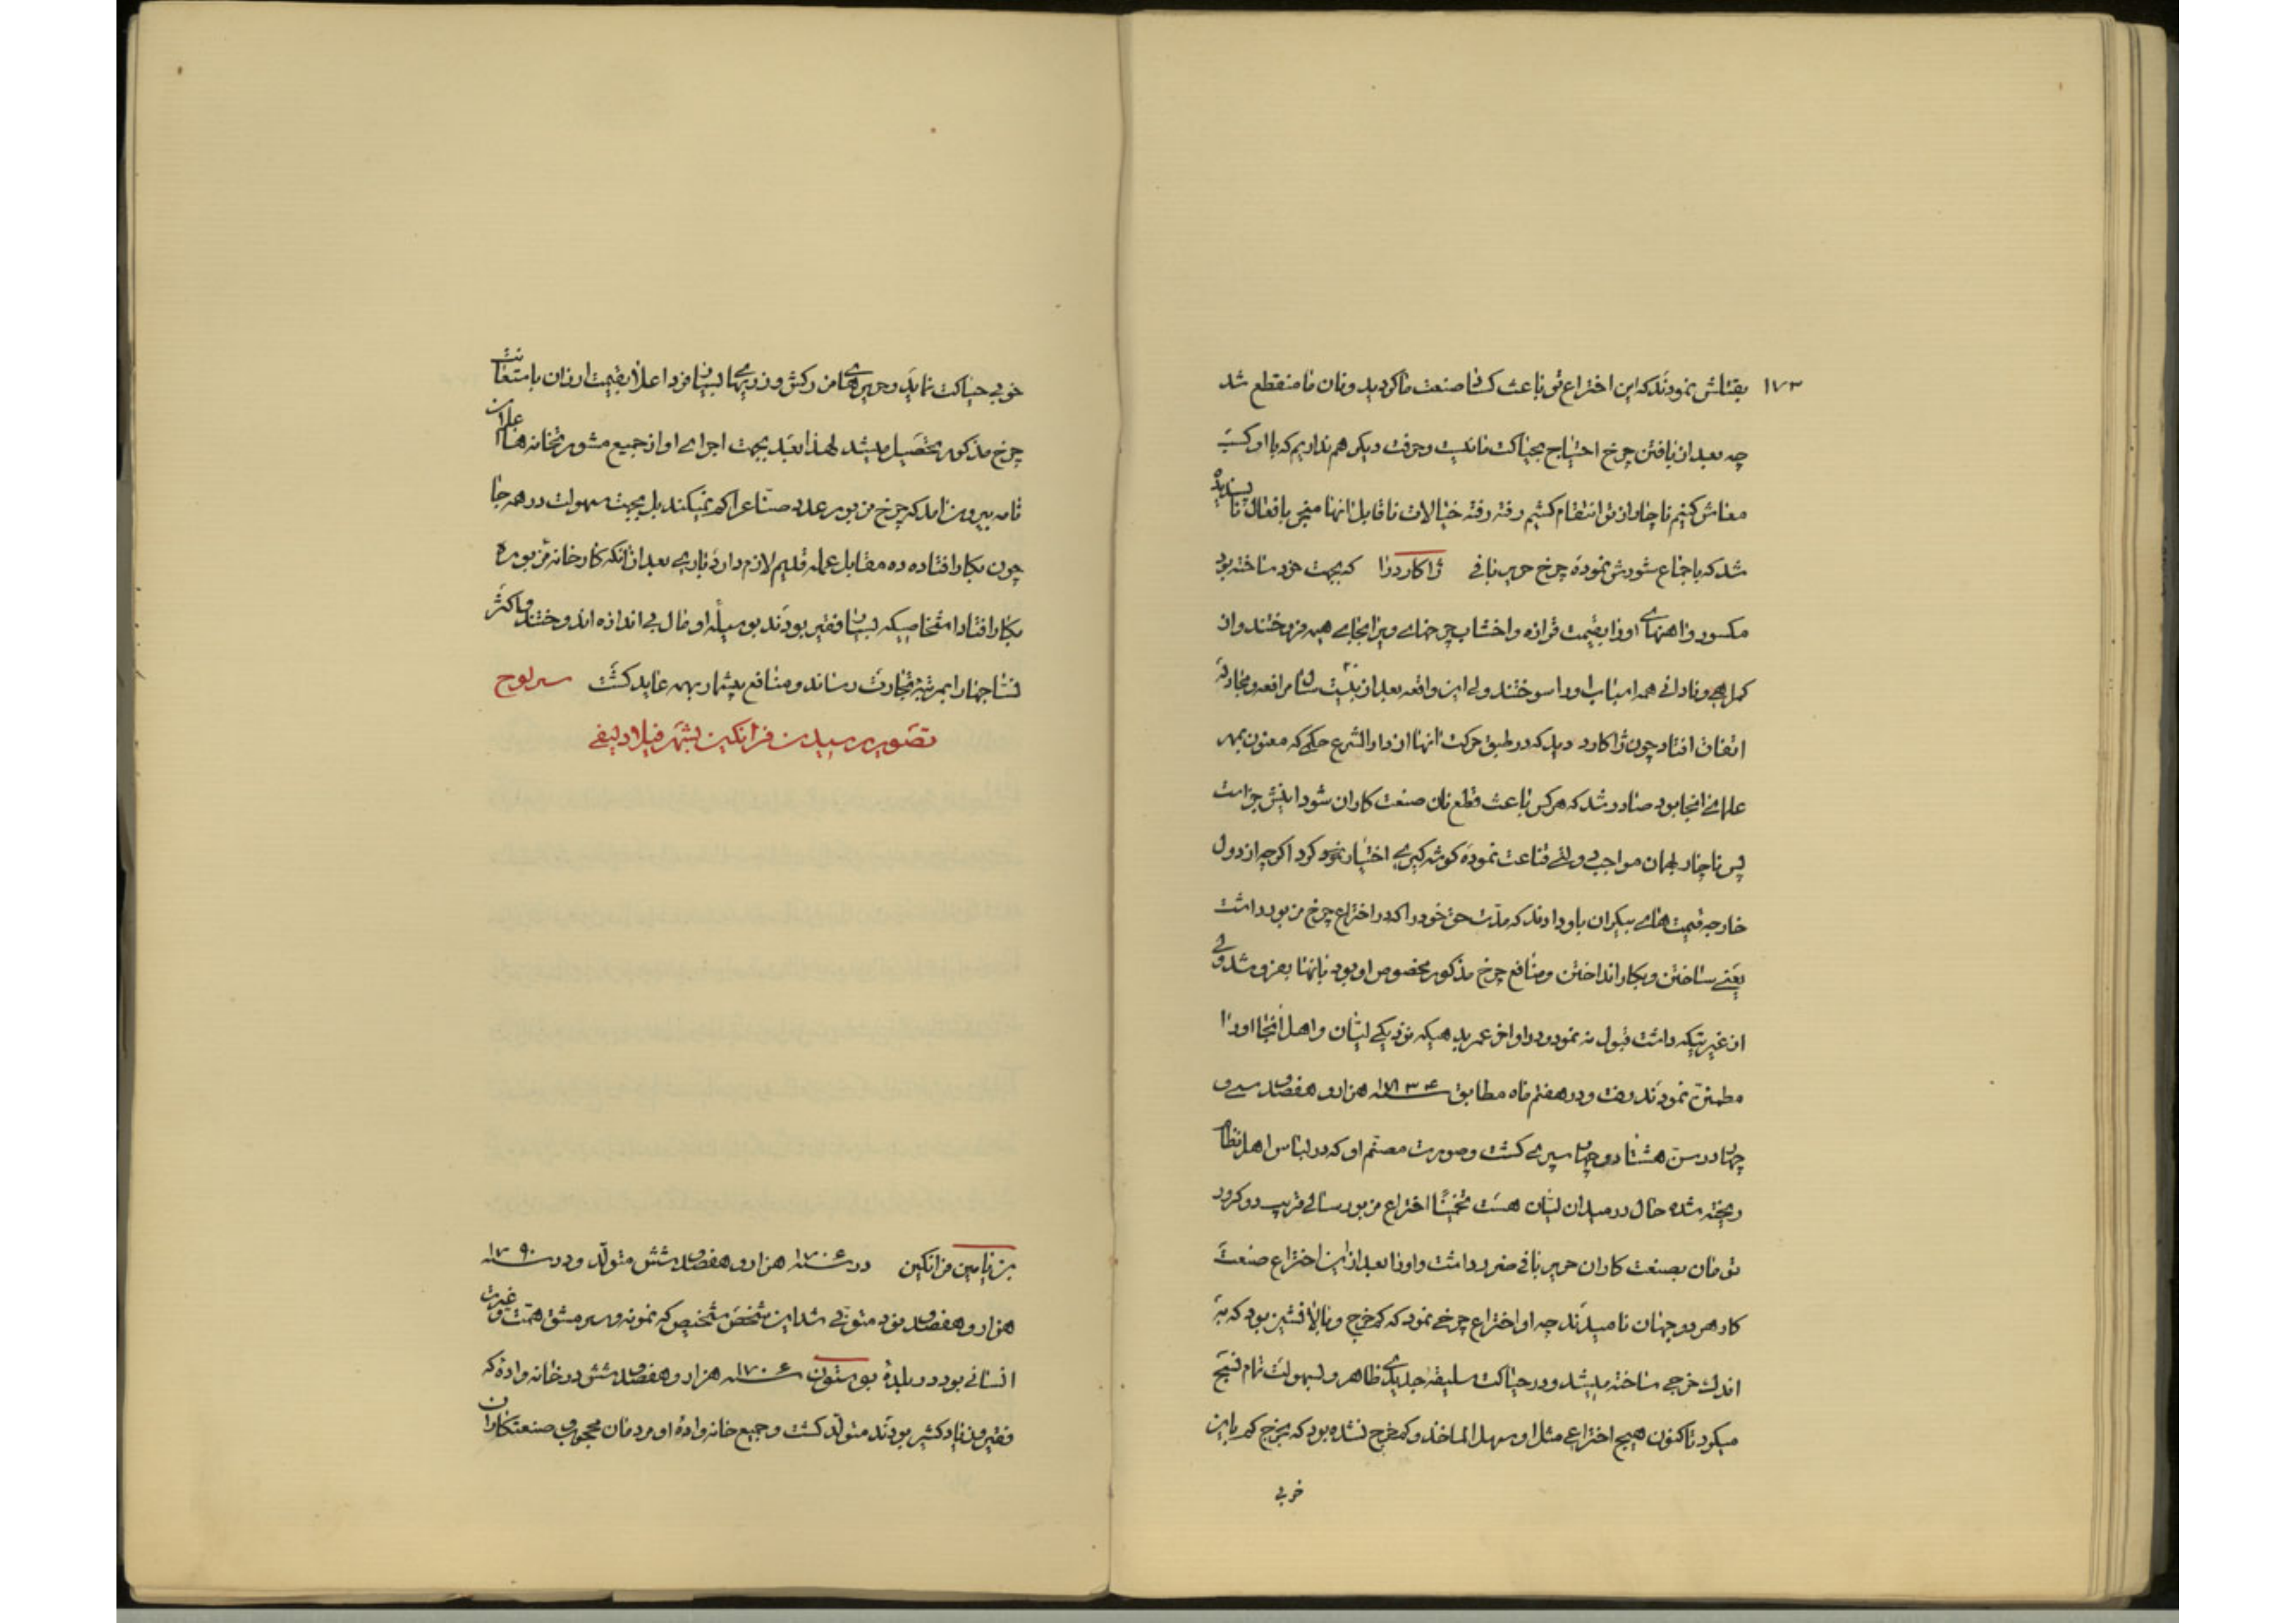 ۱۷۳ بقتلش نمودند که این اختراع تو باعث کساد صنعت ما گردید و نان ما منقطع شد
چه بعد از یافتن چرخ احتیاج بحیاکت ما نیست و حرفت دیگر هم نداریم که با او کسب
معاش کنیم ناچار از تو انتقام کشیم رفته رفته خیالات ناقابل انها منجر بافعال نا پسندیده
شد که باجماع شورش نموده چرخ حریر بافی ژاکارد را که بجهت خود ساخته بود
مکسور و اهنهای او را بقیمت قراضه و اخشاب چرخهای ویرا بجای هیمه فروختند و از
گمراهی و نادانی همه اسباب او را سوختند ولی این واقعه بعد از بیست سال مرافعه و مجادله
اتفاق افتاد چون ژاکارد دید که در طبق حرکت انها از دار الشرع حکمی که معنون بمهر
علمای انجا بود صادر شد که هر کس باعث قطع نان صنعت کاران شود اینش جزاست
پس ناچار بهمان مواجب دولتی قناعت نموده گوشه گیری اختیار نمود اگرچه از دول
خارجه قیمت های بیکران باو دادند که مدت حق خود را که در اختراع چرخ مزبور داشت
یعنی ساختن و بکار انداختن و منافع چرخ مذکور مخصوص او بود بانها بفروشد ولی
از غیرتیکه داشت قبول نه نمود و در اواخر عمر بدهیکه نزدیکی لیان و اهل انجا او را
مطمئن نمودند رفت و در هفتم ماه مطابق سنه ۱۷۳۴ هزار و هفصد و سی و
چهار در سن هشتاد و چهار سپری گشت و صورت مصنم او که در لباس اهل نظام
ریخته شده حال در میدان لیان هست تخمینا اختراع مزبور سالی قریب دو کرور
تومان بصنعت کاران حریر بافی ضرر داشت و او را بعد از این اختراع صنعت
کار هر دو جهان نامیدند چه او اختراع چرخی نمود که کم خرج و بالا نشین بود که به
اندک خرجی ساخته میشد و در حیاکت سلیقه جدیدی ظاهر و بسهولت تمام نسیج
میکرد تا کنون هیچ اختراعی مثل او سهل الماخذ و کم خرج نشده بود که بخرج کم باین
خوبی
خوبی حیاکت نماید و حریرهای زرکش و زریهای بسیار فرد اعلا بقیمت ارزان باستعانت
چرخ مذکور تحصیل میشد لهذا بعد بجهت اجرای او از جمیع مشورتخانه ها اعلان
نامه بیرون امد که چرخ مزبور عدد صناع را کم نمیکند بل بجهت سهولت در همه جا
چون بکار افتاده ده مقابل عمله قدیم لازم دارد باری بعد از انکه کارخانه مزبوره
بکار افتاد اشخاصیکه بسیار فقیر بودند بوسیله او مال بی اندازه اندوختند و اکثر
نساجها را بمرتبه تجارت رساند و منافع بیشمار بهمه عاید گشت سرلوح
تصویر رسیدن فرانکلین بشهر فیلادلیفی
بن یامین فرانکلین در سنه ۱۷۰۶ هزار و هفصد و شش متولد و در سنه ۱۷۹۰
هزار و هفصد و نود متوفی شد این شخص متخیص که نمونه و سرمشق همت و غیرت
انسانی بود در بلده بوستون سنه ۱۷۰۶ هزار و هفصد و شش در خانه واده که
فقیر و نفاد کثیر بودند متولد گشت و جمیع خانه واده او مردمان محجوب و صنعتکاران